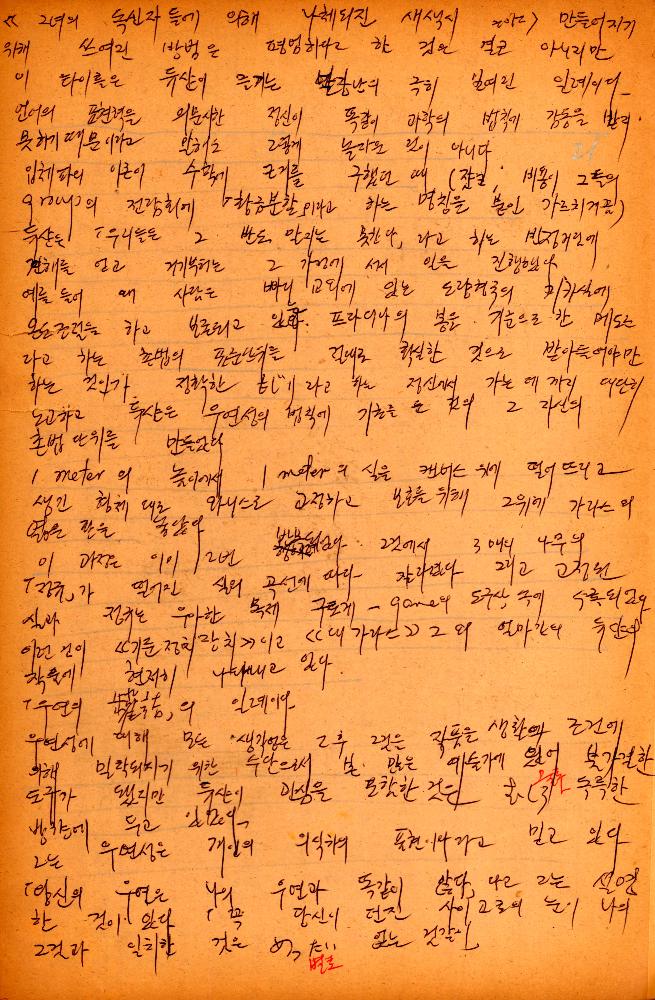 ≪ 그녀의 독신자들에 의해 나체되진 새색시 만들어지기
위해 쓰여진 방법은 평범하다고 한 것은 결코 아니지만
이 타이틀은 듀산이 즐기는 극히 일례이다
언어의 표현력을 의문시한 정신이 똑같이 과학의 법칙에 감동을
못하기 때문이라고 그렇게 놀라운 것이 아니다
입체파의 이론이 수학에 근거를 구했던 때 ( 비용이 그들의
group의 전람회에 「황금분할」이라고 하는 명칭을 붙인 가르치켜끔)
듀산은 「우리들은 그 반도 믿지는 못한다」라고 하는 반정적인에
견해를 얻고 거기부터는 그 가정에 서서 일을 진행했다
예를 들어 때 사람은 파리 교외에 있는 도량형국의 지하실에
온도조절을 하고 보존되고 있는 프라티나의 봉을 기준으로 한 메타는
라고 하는 촌법의 표준단위를 절대로 확실한 것으로 받아들여야만
하는 것인가 정확한 라고 하는 정신에서 가는 데 까지
노고하고 듀산은 우연성의 법칙에 기초를 둔 것의 그 자신의
촌법단위를 만들었다
1 meter의 높이에서 1 meter의 실을 캔버스 위에 떨어뜨리고
생긴 형체대로 와니스로 고정하고 보호를 위해 그위에 가라스의
엷은 판을 놓았다
이 과정은 이어 2번 그것에서 3매의 나무의
「정규」가 떨어진 실의 곡선에 따라 잘라졌다 그리고 고정된
실과 정규는 우아한 목제 구로케-game의 도구상 속에 수록되었다
이런 것이 ≪기둔정지장치≫이고 ≪대가라스≫ 그외 얼마간의 듀산의
작품에 현저히 나타내고 있다
「우연의 」의 일례이다
우연성에 대해 모든 생각함은 그후 그것은 작품을 생활의 조건에
의해 밀착되지기 위한 수단으로서 본 많은 예술가에 있어 불가결한
도구가 됐지만 듀산이 관심을 포함한 것은 극히 독특한
방향에 두고 있었다
그는 우연성은 개인의 의식하의 표현이다라고 믿고 있다
「당신의 우연은 나의 우연과 똑같이 않다」라고 그는 설명
한 것이 있다 「꼭 당신이 던진 사이코로의 눈이 나의
그것과 일치한 것은 めったに 없는 것같이」
별로